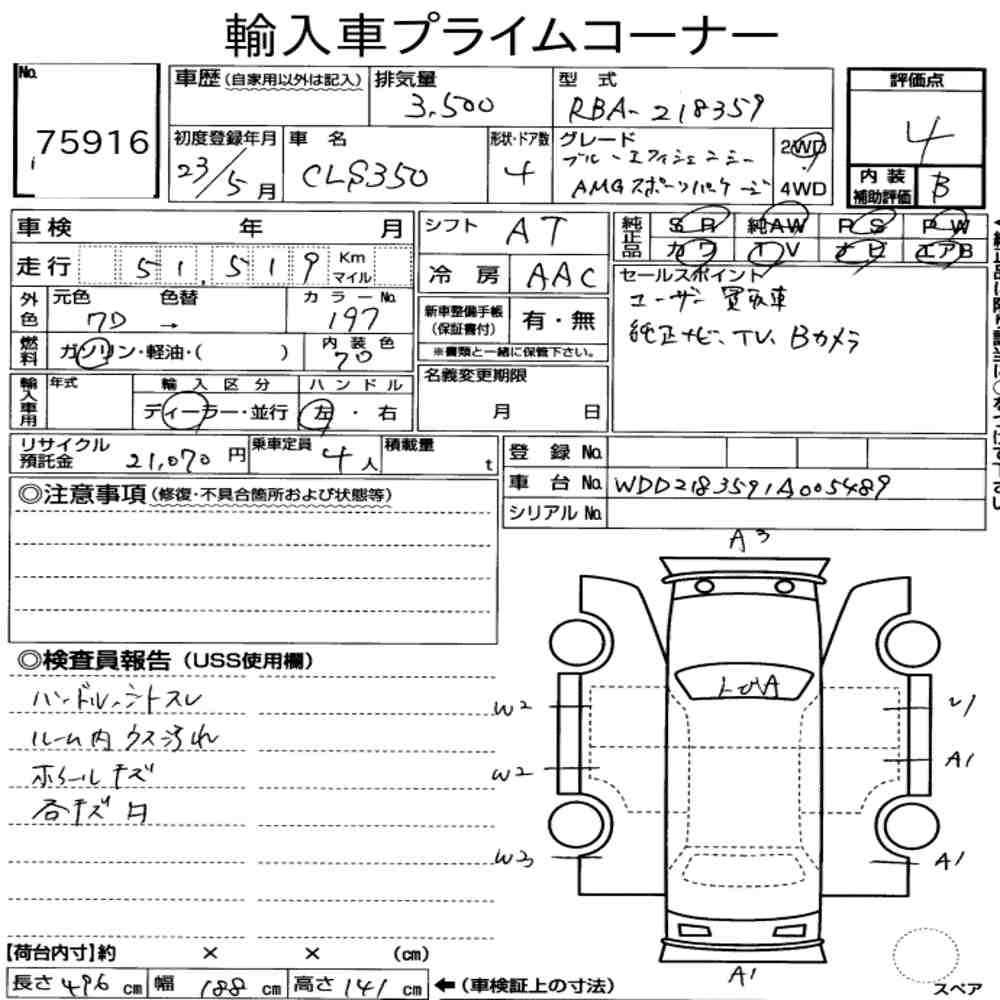 輸入車プライムコーナー
No. 75916
車歴(自家用以外は記入)
排気量 3,500
型式 RBA-218359
評価点 4
初度登録年月 23/5月
車名 CLS350
形状・ドア数 4
グレード ブルーエフィシェンシー
AMGスポーツパッケージ
2WD
4WD
内装補助評価 B
車検 年 月
走行 51,519 Km マイル
外色 元色 7D 色替 → カラーNo. 197
燃料 ガソリン・軽油・( ) 内装色 70
輸入車用 年式 輸入区分 ハンドル
ディーラー・並行 左・右
リサイクル預託金 21,070円
乗車定員 4人
積載量 t
シフト AT
冷房 AAC
新車整備手帳(保証書付) 有・無
※書類と一緒に保管下さい。
名義変更期限
月 日
純正品 SR 純AW PS PW
カワ TV ナビ エアB
セールスポイント
ユーザー買取車
純正ナビ、TV、Bカメラ
登録No.
車台No. WDD2183591A005489
シリアルNo.
◎注意事項(修復・不具合箇所および状態等)
◎検査員報告(USS使用欄)
ハンドル、シートスレ
ルーム内ウス汚れ
ホイールキズ
各キズ凹
A3
W2
W2
W3
A1
A1
A1
【荷台内寸】約 × × (cm)
長さ 496 cm 幅 188 cm 高さ 141 cm ←(車検証上の寸法)
スペア